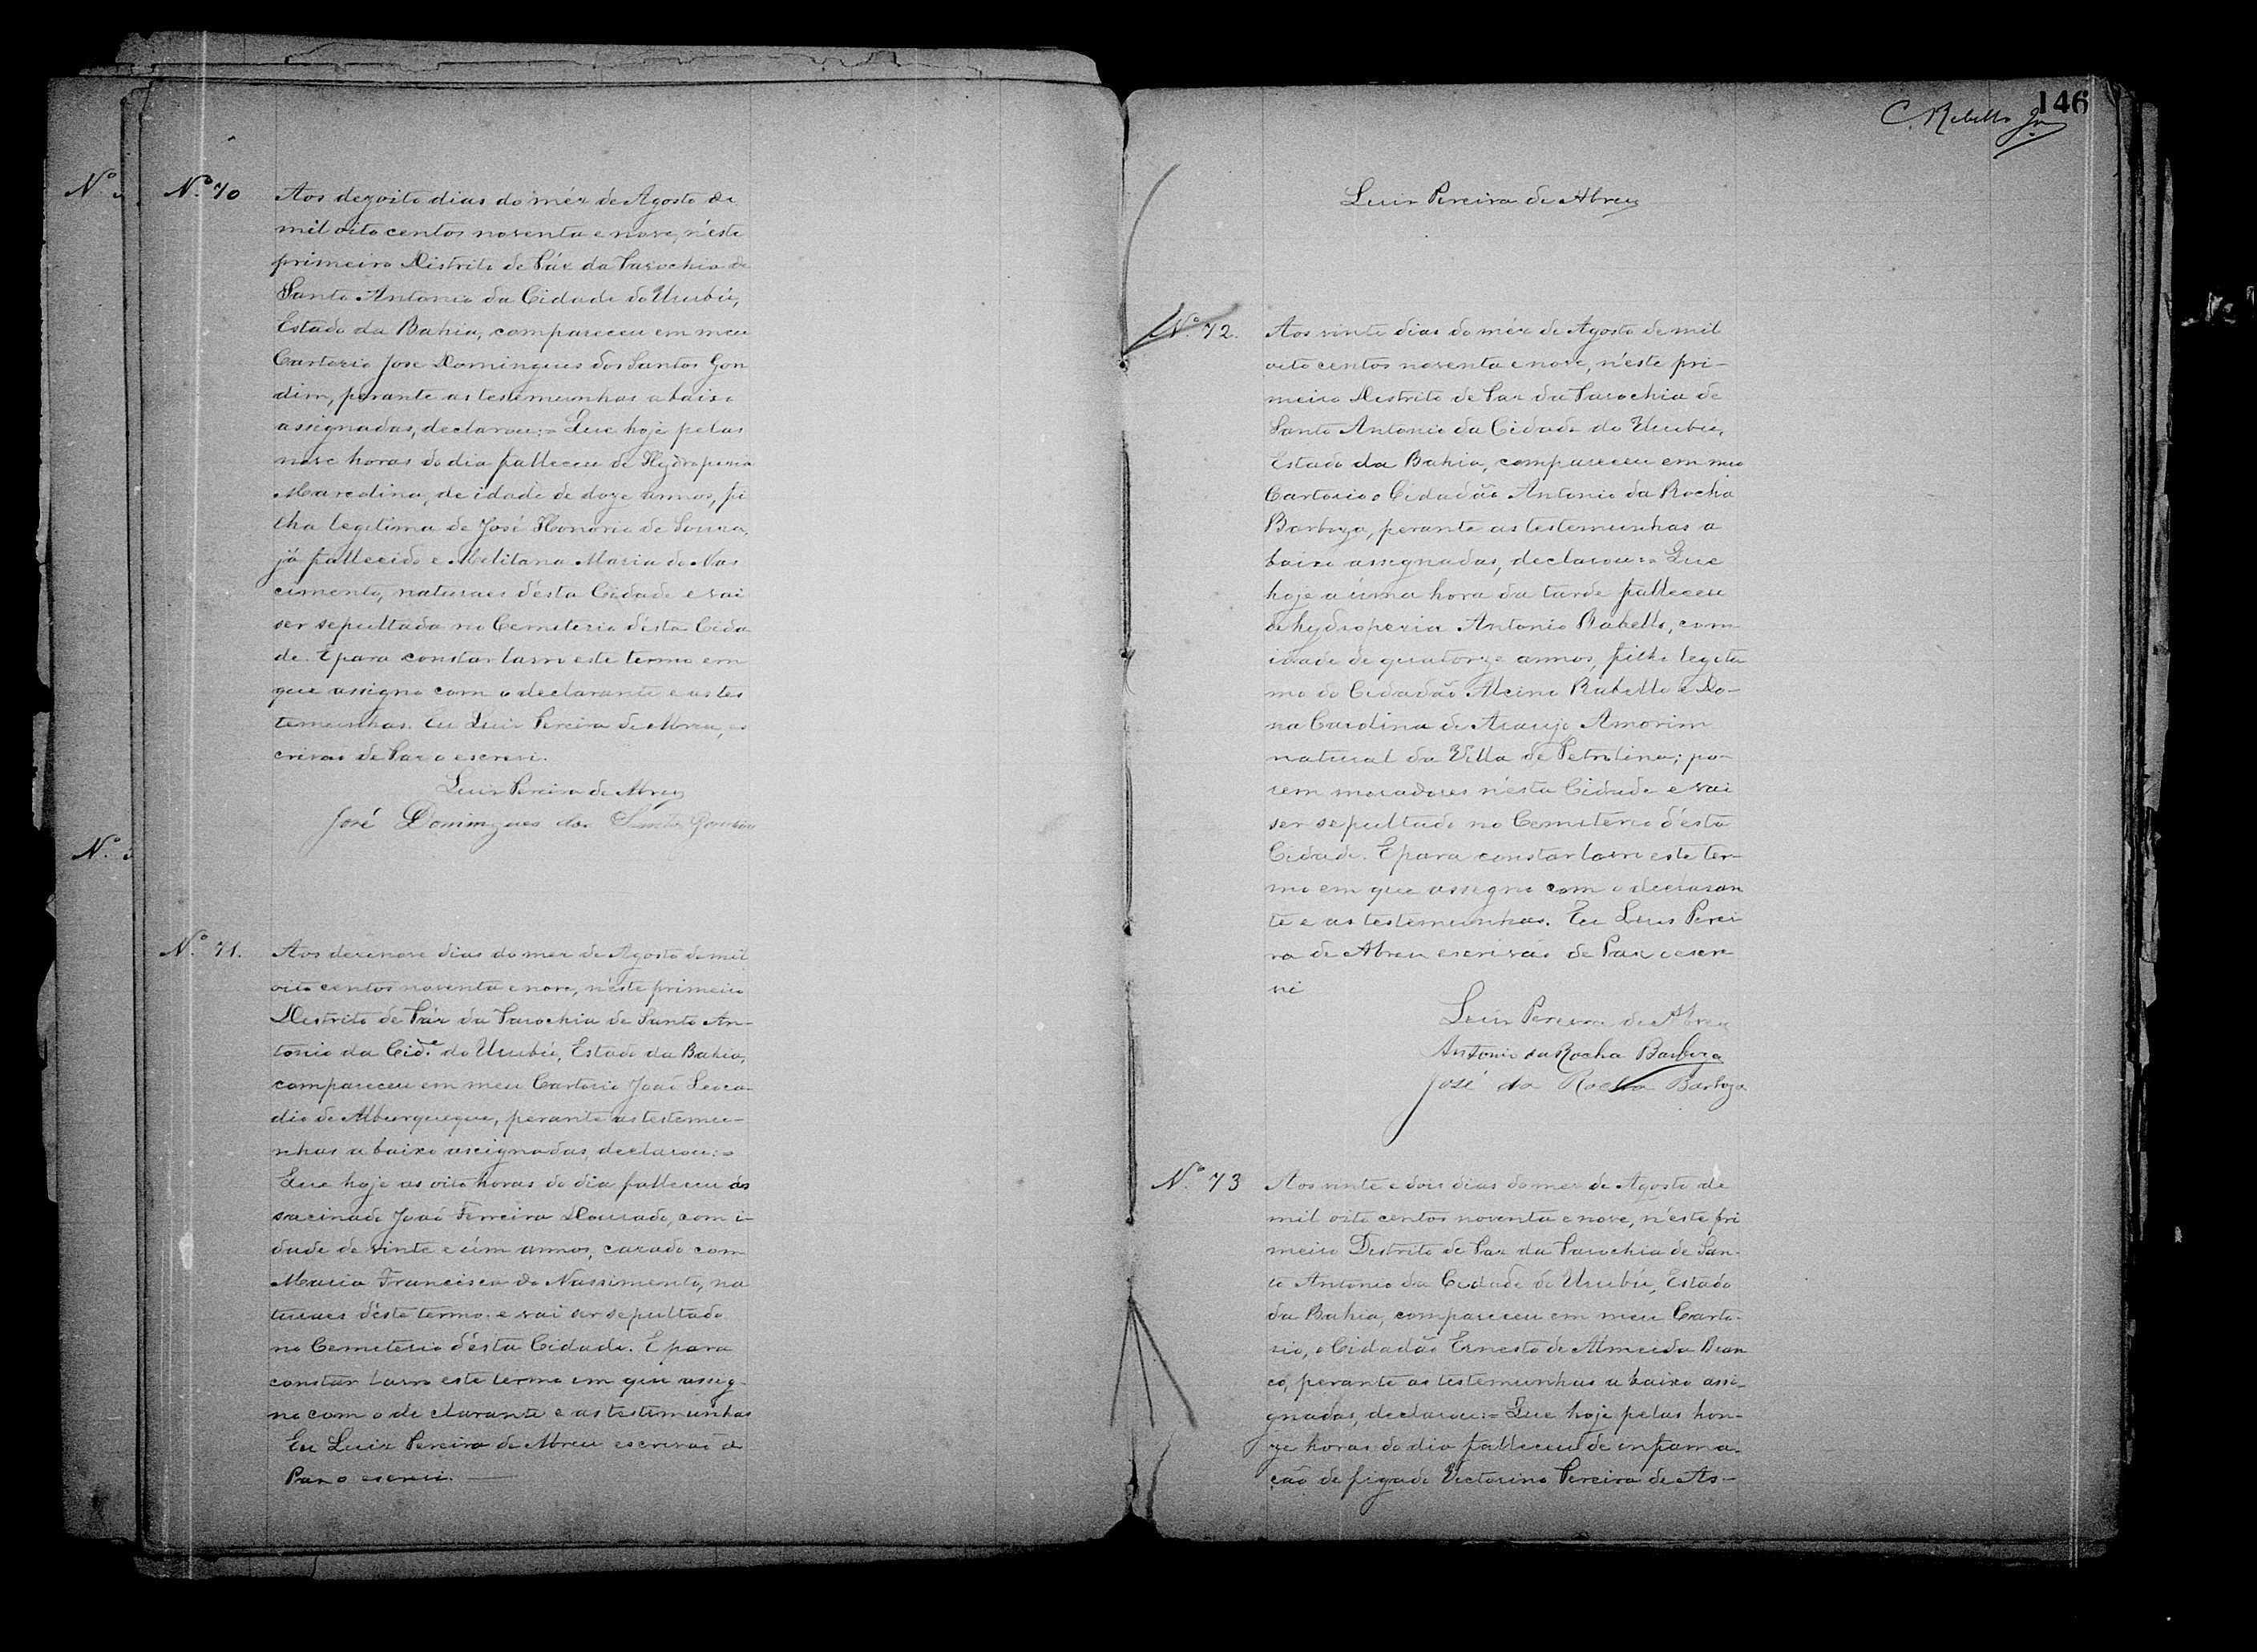 Nº 70
Aos dezoito dias do méz de Agosto de
mil oito centos noventa e nove, n'este
primeiro Districto de Páz da Parochia de
Santo Antonio da Cidade do Urubú,
Estado da Bahia, compareceu em meu
Cartorio Jose Domingues dos Santos Gon
dim, perante as testemunhas abaixo
assignadas, declarou:= Que hoje pelas
nove horas do dia falleceu de Hydropesia
Marcolina, de idade de doze annos, fi
lha legitima de José Honorio de Souza,
já fallecido e Melitana Maria do Nas
cimento, naturaes d'esta Cidade e vai
ser sepultada no Cemiterio d'esta Cida
de. E para constar lavro este termo em
que assigno com o declarante e as tes
temunhas. Eu Luiz Pereira de Abreu, es
crivão de Paz o escrevi.
Luiz Pereira de Abreu
José Domingues dos Santos Gondim
Nº 71.
Aos dezenove dias do mez de Agosto de mil
oito centos noventa e nove, n'este primeiro
Districto de Páz da Parochia de Santo An-
tonio da Cid.e do Urubú, Estado da Bahia,
compareceu em meu Cartorio João Leoca
dio de Alburqueque, perante as testemu-
nhas a baixo assignadas, declarou:=
Que hoje as oito horas do dia falleceu as
sacinado João Ferreira Dourado, com i-
dade de vinte e úm annos, cazado com
Maria Francisca do Nassimento, na
turaes d'este termo. e vai ser sepultado
no Cemeterio d'esta Cidade. E para
constar lavro este termo em que assig-
no com o declarante e as testemunhas
Eu Luiz Pereira de Abreu escrivão de
Paz o escrevi.
146
C. Rebello Jr
Luiz Pereira de Abreu
Nº 72.
Aos vinte dias do méz de Agosto de mil
oito centos noventa e nove, n'este pri-
meiro Districto de Paz da Parochia de
Santo Antonio da Cidade do Urubu,
Estado da Bahia, compareceu em meu
Cartorio o Cidadão Antonio da Rocha
Barboza, perante as testemunhas a
baixo assignadas, declarou:= Que
hoje a úma hora da tarde falleceu
de hydropezia Antonio Rabello, com
idade de quatorze annos, filho legiti
mo do Cidadão Alcino Rabello e Do-
na Carolina de Araujo Amorim
natural da Villa de Petrolina; po-
rem moradores n'esta Cidade e vai
ser sepultado no Cemitério d'esta
Cidade. E para constar lavro este ter-
mo em que assigno com o declaran
te e as testemunhas. Eu Luis Perei
ra de Abreu escrivão de Paz o escre
vi
Luiz Pereira de Abreu
Antonio da Rocha Barboza
José da Rocha Barboza
Nº 73
Aos vinte e dois dias do mez de Agosto de
mil oito centos noventa e nove, n'este pri
meiro Districto de Paz da Parochia de San-
to Antonio da Cidade do Urubú, Estado
da Bahia, compareceu em meu Carto-
rio, o Cidadão Ernesto de Almeida Bran
co, perante as testemunhas a baixo assi-
gnadas, declarou:= Que hoje pelas hon-
ze horas do dia falleceu de infama-
ção de figado Victorino Pereira de As-